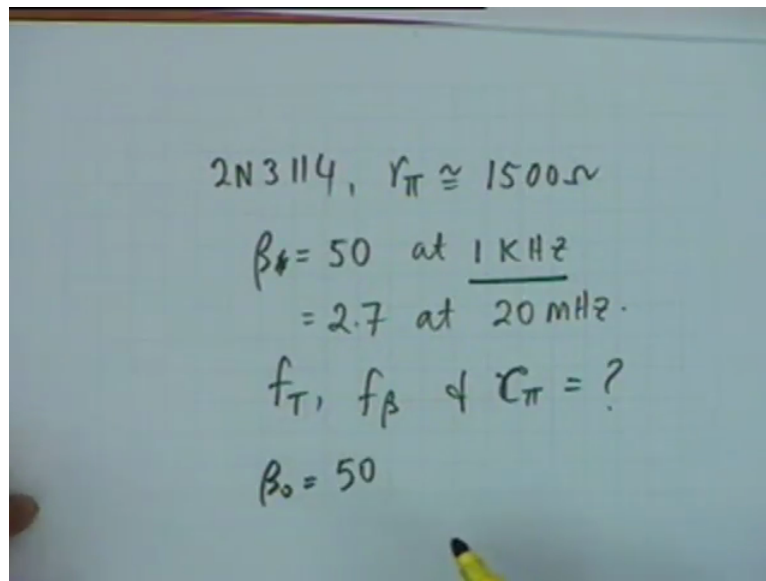 2N3114, rπ ≅ 1500Ω
β = 50 at 1 KHz
= 2.7 at 20 mHz.
fT, fβ & Cπ = ?
β0 = 50